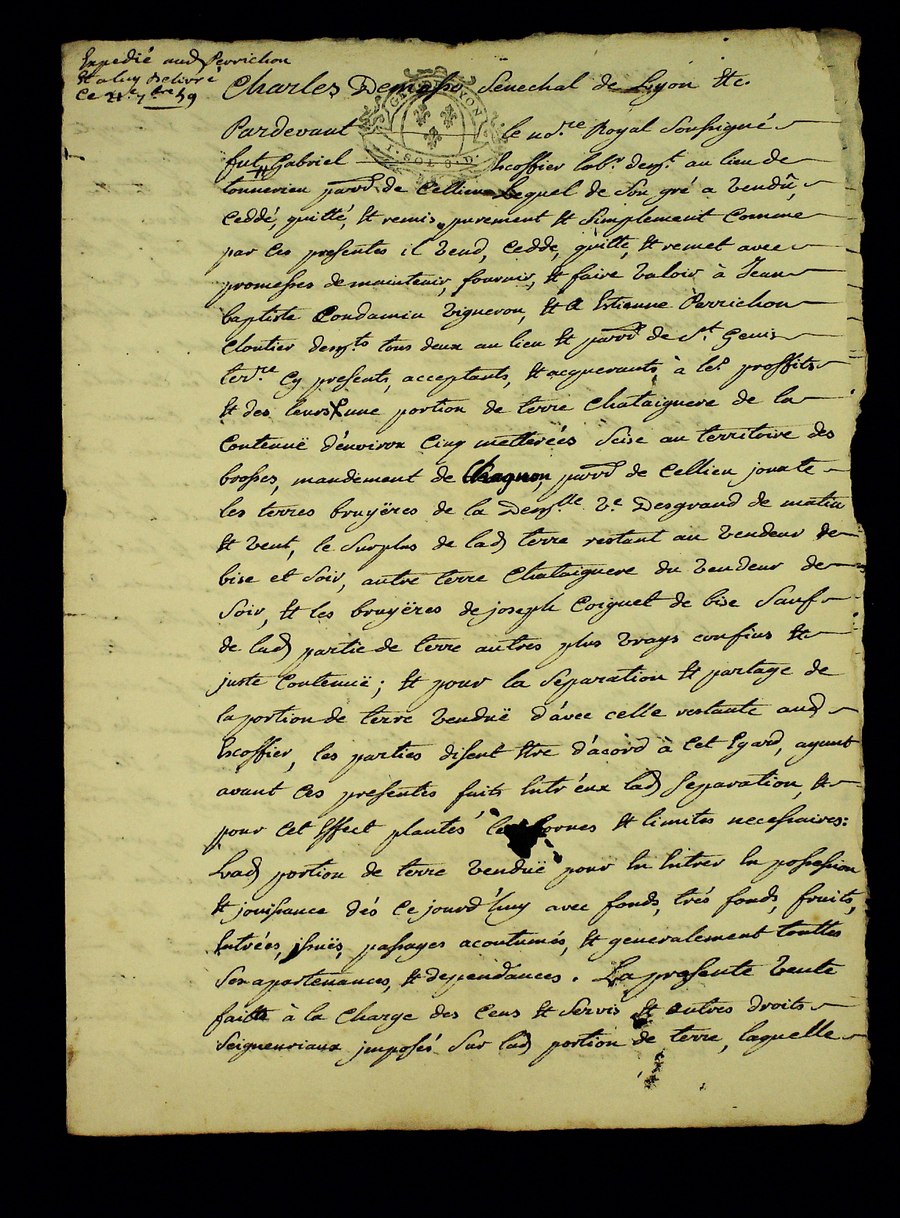 Expedié aud Perrichon
& a luy delivré
Ce 7bre 59
Charles Demasso Senechal de Lyon &c.
G. DE LYON
1. SOL 8. D.
Pardevant le nore Royal Soussigné
fut Gabriel Escoffier labr demt au lieu de
parr de Cellieu Lequel de Son gré a vendû,
Ceddé, quitté, & remis purement & Simplement Comme
par Ces presentes il vend, Cedde, quitte, & remet avec
promesses de maintenir, fournir, & faire valoir à Jean
baptiste Condamin vigneron, & a Estienne Perrichon
Cloutier demts tous deux au lieu & parr de St Genis
terrre Cy presents, acceptants, & acquerants à les proffits
& des leurs une portion de terre Chataignere de la
Contenuë d'environ Cinq metterées Scise au territoire des
bosses, mandement de Chagnon, parr de Cellieu jouxte
les terres bruÿeres de la Demlle Ve Desgrand de matin
& vent, le Surplus de lad terre restant au vendeur de
bise et Soir, autre terre Chataignere du vendeur de
Soir, & les bruÿeres de joseph Coignet de bise Sauf
de lad partie de terre autres plus vrays confins &
juste Contenuë; & pour la Separation & partage de
la portion de terre venduë d'avec celle restante aud
Escoffier, les parties disent Etre d'acord à Cet Egard, ayant
avant Ces presentes fait Entr'eux lad Separation, &
pour Cet Effect plantés les bornes & limites necessaires:
Lad portion de terre venduë pour En Entrer En possession
& jouissance dés Ce jourd'huy avec fonds, trés fonds, fruits,
Entrées, issuës, passages acoutumés, & generalement touttes
Ses apartenances, & dependances. La presente vente
faitte à la Charge des Cens & Servis & autres droits
Seigneuriaux jmposés Sur lad portion de terre, laquelle